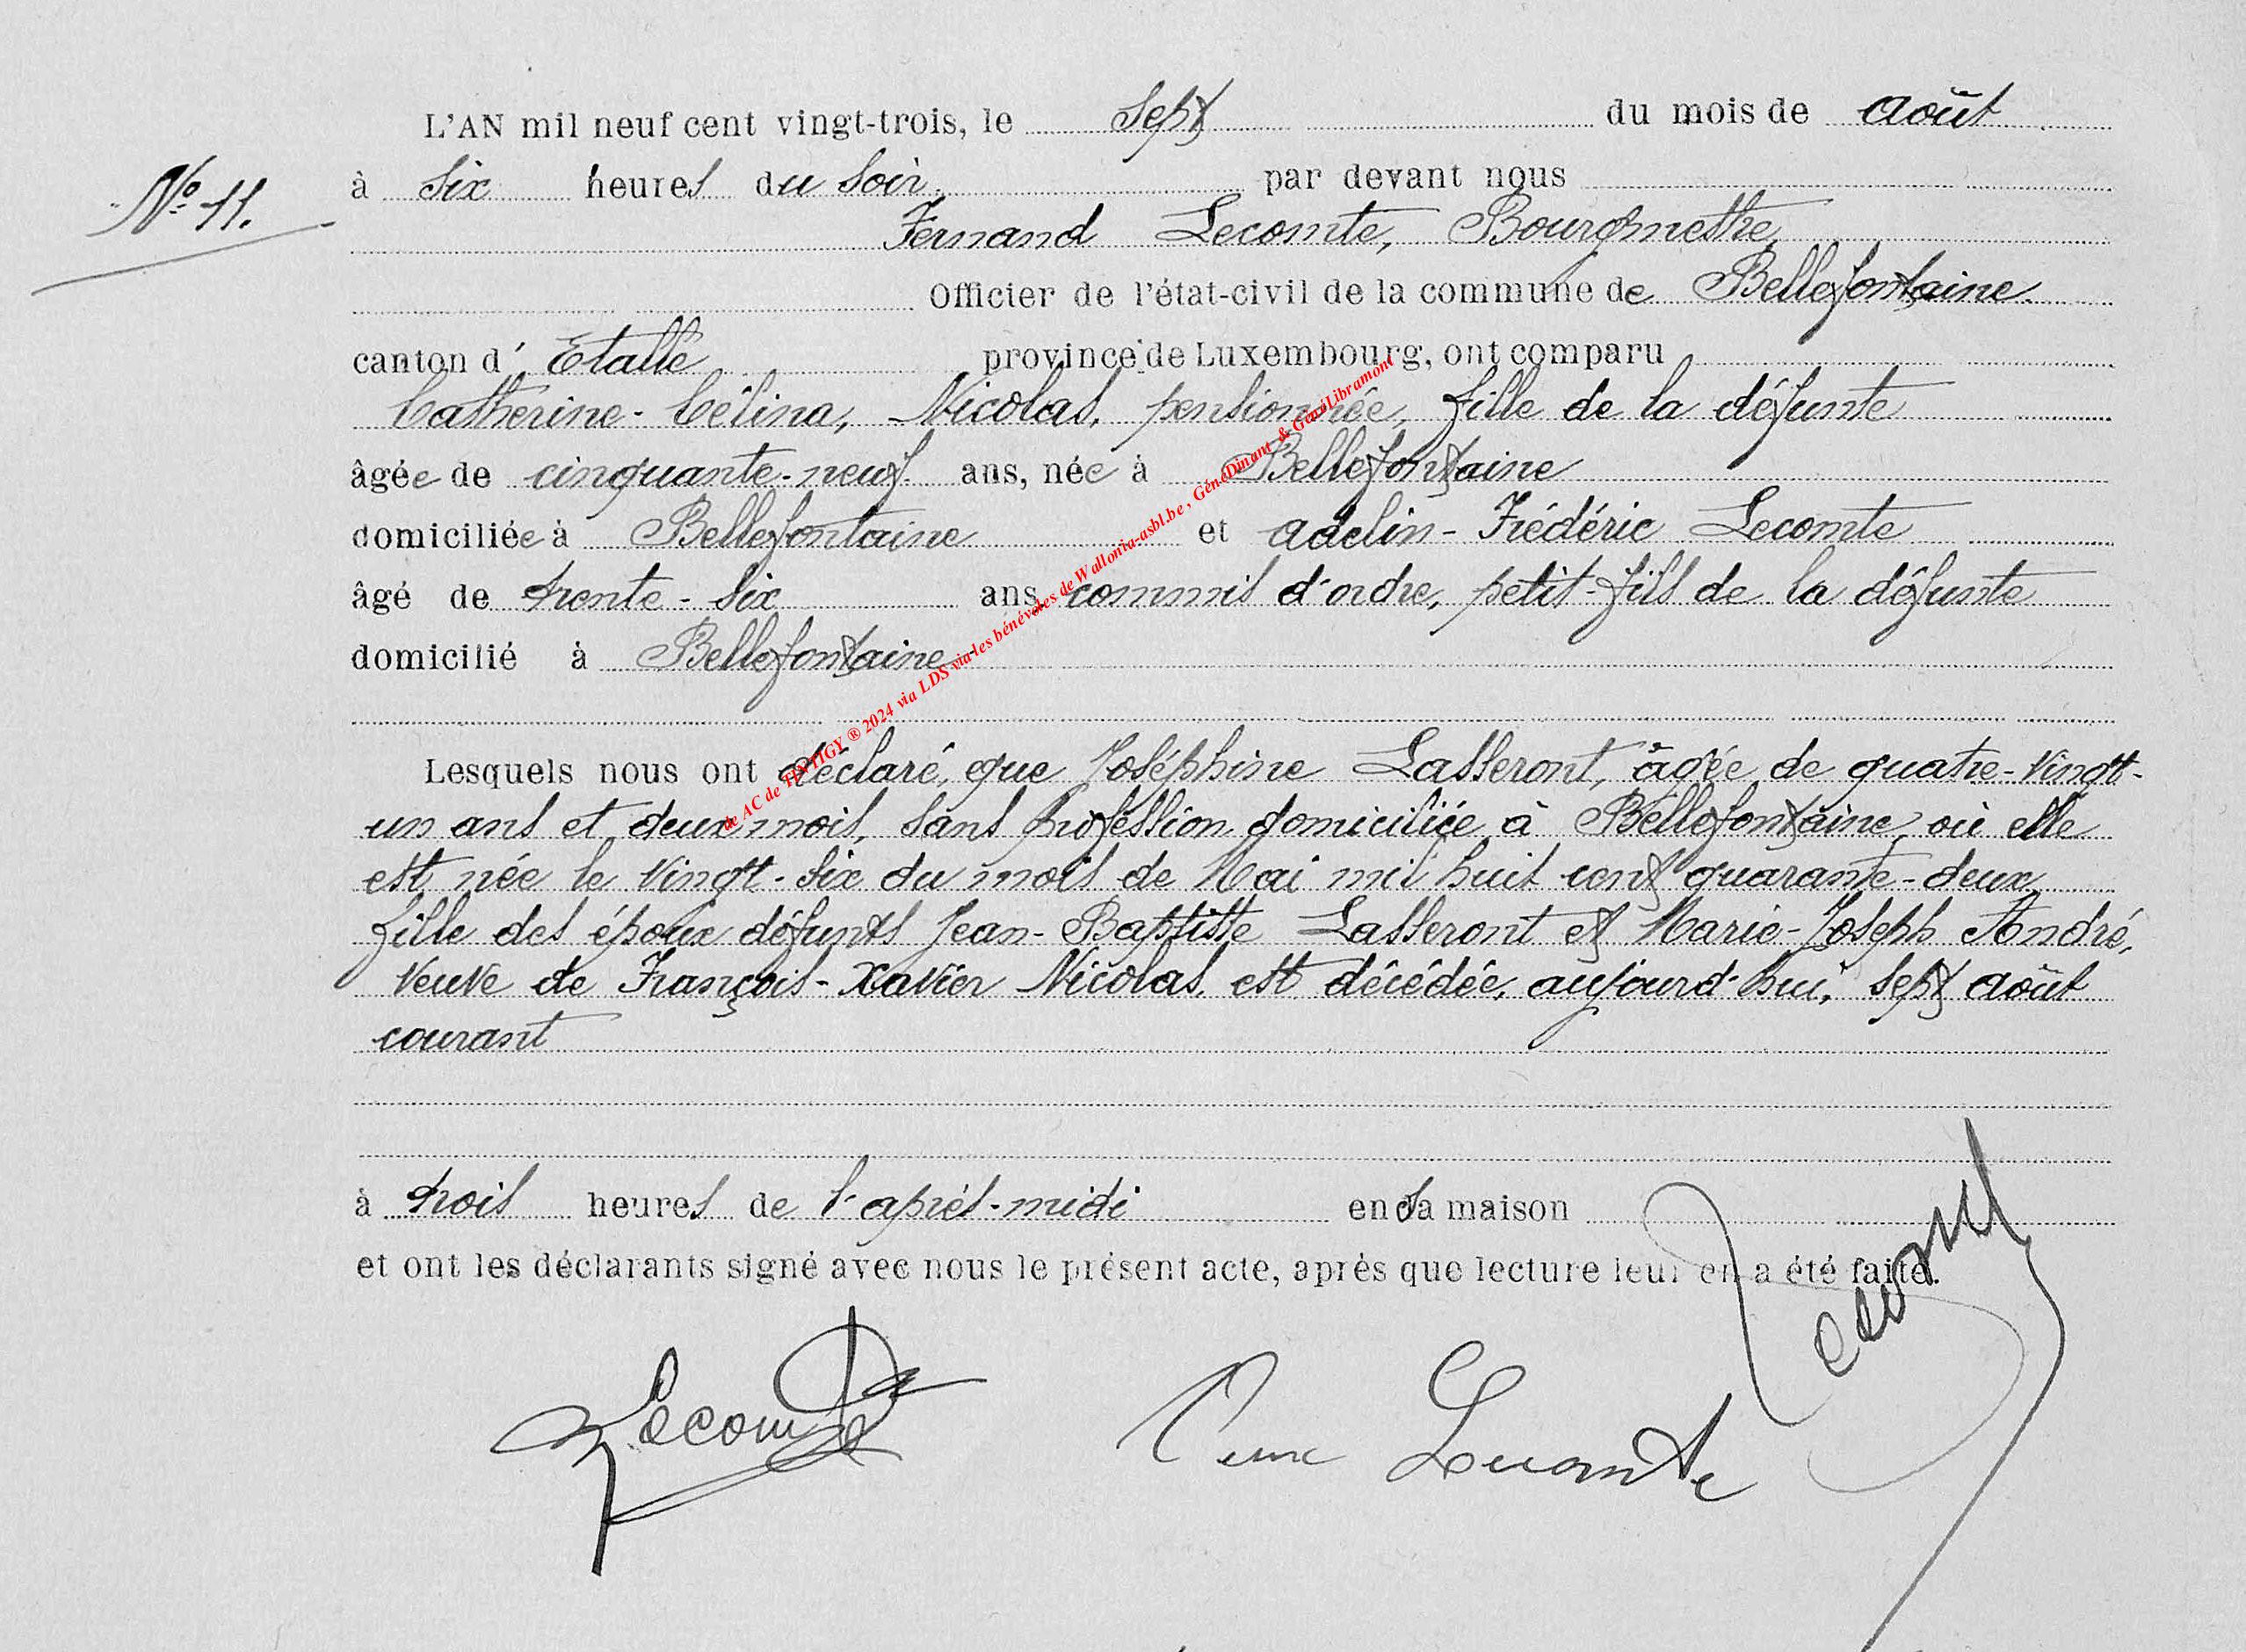 L'AN mil neuf cent vingt-trois, le sept du mois de août
N° 11.
à six heures du soir, par devant nous
Fernand Lecomte, Bourgmestre,
Officier de l'état-civil de la commune de Bellefontaine.
canton d' Etalle province de Luxembourg, ont comparu
Catherine-Célina, Nicolas, pensionnée, fille de la défunte
âgée de cinquante-neuf ans, née à Bellefontaine
domiciliée à Bellefontaine et Adelin-Frédéric Lecomte
âgé de trente-six ans, commis d'ordre, petit-fils de la défunte
domicilié à Bellefontaine
de AC de TINTIGY ® 2024 via LDS via les bénévoles de Wallonia-asbl.be , GénéDinant & GénéLibramont
Lesquels nous ont déclaré, que Joséphine Lasseront, âgée de quatre-vingt-
un ans et deux mois, sans profession domiciliée à Bellefontaine, où elle
est née le vingt-six du mois de Mai mil huit cent quarante-deux,
fille des époux défunts Jean-Baptiste Lasseront et Marie-Joseph André,
veuve de François-Xavier Nicolas, est décédée, aujourd'hui, sept août
courant
à trois heures de l'après-midi en sa maison
et ont les déclarants signé avec nous le présent acte, après que lecture leur en a été faite.
Lecomte
Lecomte
Lecomte